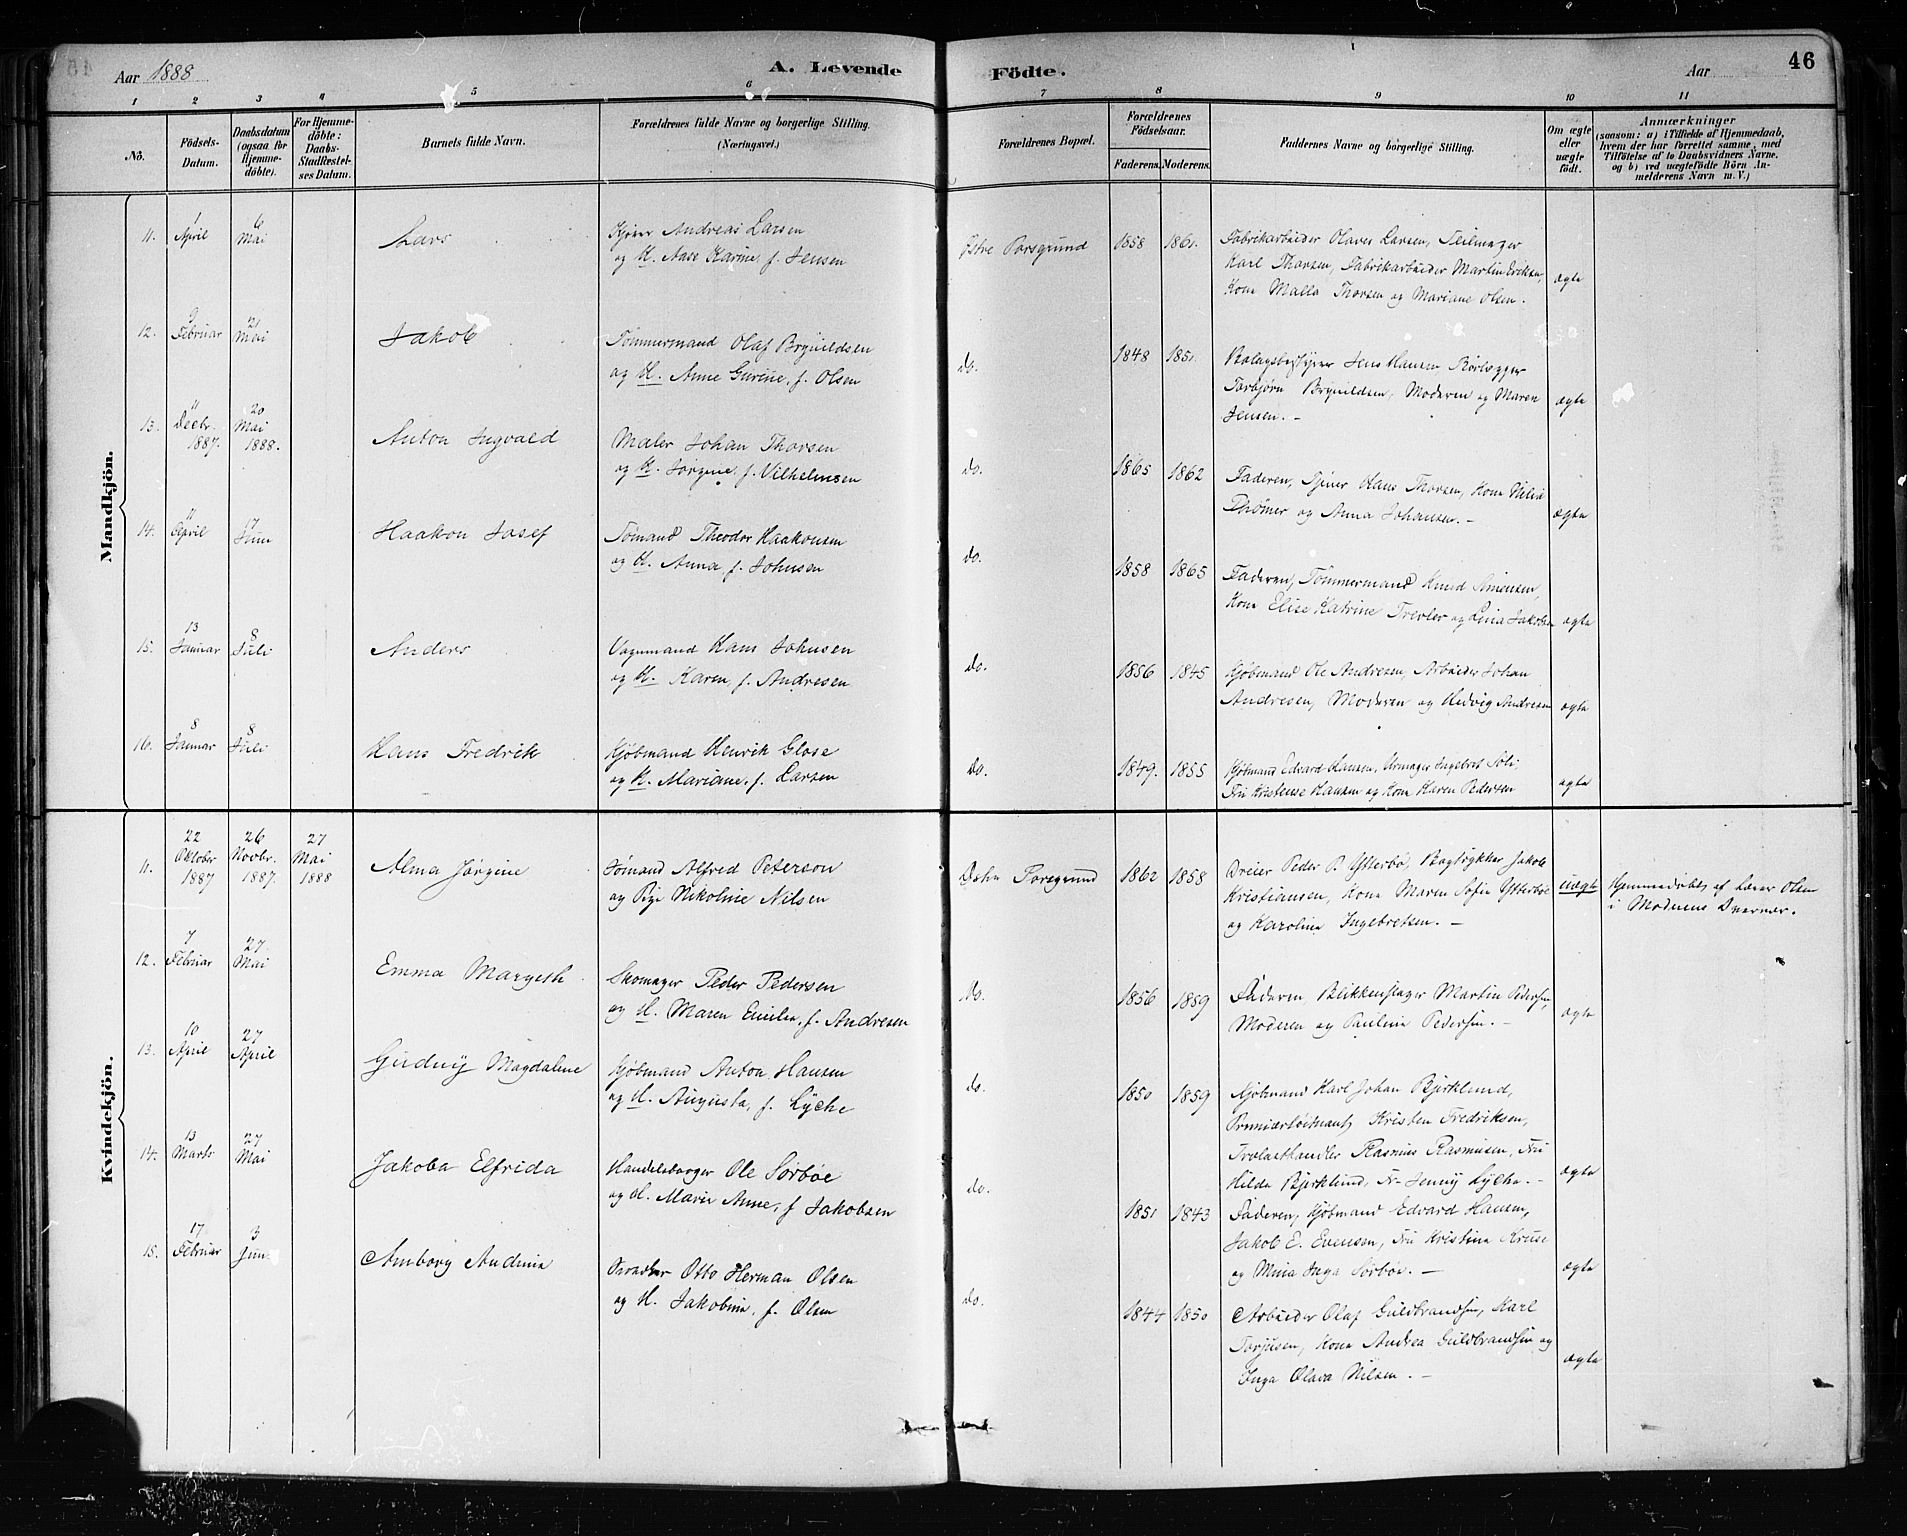 Aar 1888 A. Levende Födte. Aar 46
1 2 3 4 5 6 7 8 9 10 11
No.
Födsels-Datum.
Daabsdatum (ogsaa for Hjemme-döbte).
For Hjemme-döbte: Daabs-Stadfæstel-ses Datum.
Barnets fulde Navn.
Forældrenes fulde Navne og borgerlige Stilling.
(Næringsvei.)
Forældrenes Bopæl.
Forældrenes Födselsaar.
Faderens. Moderens.
Faddernes Navne og borgerlige Stilling.
Om ægte eller uægte födt.
Anmærkninger
(saasom: a) i Tilfælde af Hjemmedaab,
hvem der har forrettet samme, med
Tilföielse af to Daabsvidners Navne.
og b) ved uægtefödte Börn An-
melderens Navn m. V.)
Mandkjön.
11. 1 April 6 Mai Lars
Andreas Larsen
og H. Aase Karine, f. Jensen
Østre Porsgrund 1858 1861.
Fabrikarbeider Olaves Larsen, Seilmager
Karl Thorsen, Fabrikarbeider Martin Eriksen,
Kone Malla Thorsen og Mariane Olsen. ægte
12. 9 Februar 21 Mai Jakob
Tømmermand Olaf Brynildsen
og H. Anne Gurine, f. Olsen
do. 1848 1851.
Jens Hansen Rørlægger
Torbjørn Brynildsen, Moderen og Maren
Jensen. — ægte
13. 11 Decbr. 1887. 20 Mai 1888. Anton Ingvald
Maler Johan Thorsen
og H. Jørgine, f. Vilhelmsen
do. 1865 1862
Faderen, Tjener Hans Thorsen, Kone
og Anna Johansen. — ægte
14. 11 April 17 Juni Haakon Josef
Sømand Theodor Haakonsen
og H. Anna, f. Johnsen
do. 1858 1865
Faderen, Tømmermand Knud Simonsen,
Kone Elise Katrine Trevler og Lina Jakobsen ægte
15. 13 Januar 8 Juli Anders
Vognmand Hans Johnsen
og H. Karen f. Andresen
do. 1856 1845
Kjøbmand Ole Andresen, Arbeider Johan
Andresen, Moderen og Hedvig Andresen ægte
16. 8 Januar 8 Juli Hans Fredrik
Kjøbmand Henrik Glose
og H. Mariane, f. Larsen
do. 1849. 1855
Kjøbmand Edvard Hansen, Urmager Ingebret Soli
Fru Kristense Hansen og Kone Karen Pedersen ægte
Kvindekjön.
11. 22 Oktober 1887 26 Novbr. 1887. 27 Mai 1888 Alma Jørgine
Sømand Alfred Peterson
og Pige Nikoline Nilsen
Østre Porsgrund 1862 1858
Dreier Peder P. Ytterbø, Bogtrykker Jakob
Kristiansen, Kone Maren Sofie Ytterbøe
og Karoline Ingebretsen. — uægte
Hjemmedøbt af Lærer Olsen
i Moderens Nærvær.
12. 7 Februar 27 Mai Emma Margreth
Skomager Peder Pedersen
og H. Maren Emilie, f. Andresen
do. 1856 1859
Faderen, Blikkenslager Martin Pedersen,
Moderen og Pauline Pedersen. — ægte
13. 10 April 27 April Gudny Magdalene
Kjøbmand Anton Hansen
og H. Augusta, f. Lyche
do. 1850 1859
Kjøbmand Karl Johan Bjerklund,
Premierløitnant Kristen Fredriksen,
Trælasthandler Rasmus Rasmussen, Fru
Hilda Bjerklund, Fr. Jenny Lyche. — ægte
14. 13 Marts 27 Mai Jakoba Elfrida
Handelsborger Ole Sorbøe
og H. Marie Anne, f. Jakobsen
do. 1851 1843
Faderen, Kjøbmand Edvard Hansen,
Jakob E. Evensen, Fru Kristine Kruse
og Mina Inga Sorbøe. — ægte
15. 17 Februar 3 Juni Amborg Andrine
Otto Herman Olsen
og H. Jakobine, f. Olsen
do. 1844 1850
Arbeider Olaf Guldbrandsen, Karl
Torjusen, Kone Andrea Guldbrandsen og
Inga Olava Nilsen. — ægte